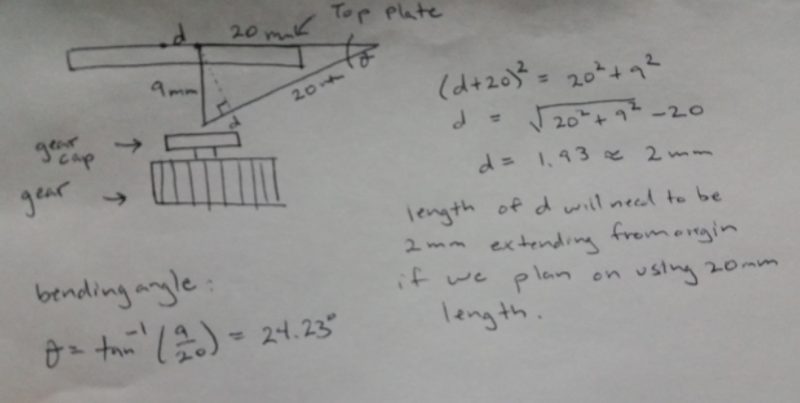 Top Plate
d 20 mm
θ
9mm
20
d
gear cap
gear
(d+20)² = 20² + 9²
d = √20² + 9² - 20
d = 1.93 ≈ 2 mm
length of d will need to be
2mm extending from origin
if we plan on using 20mm
length.
bending angle:
θ = tan⁻¹ (9/20) = 24.23°